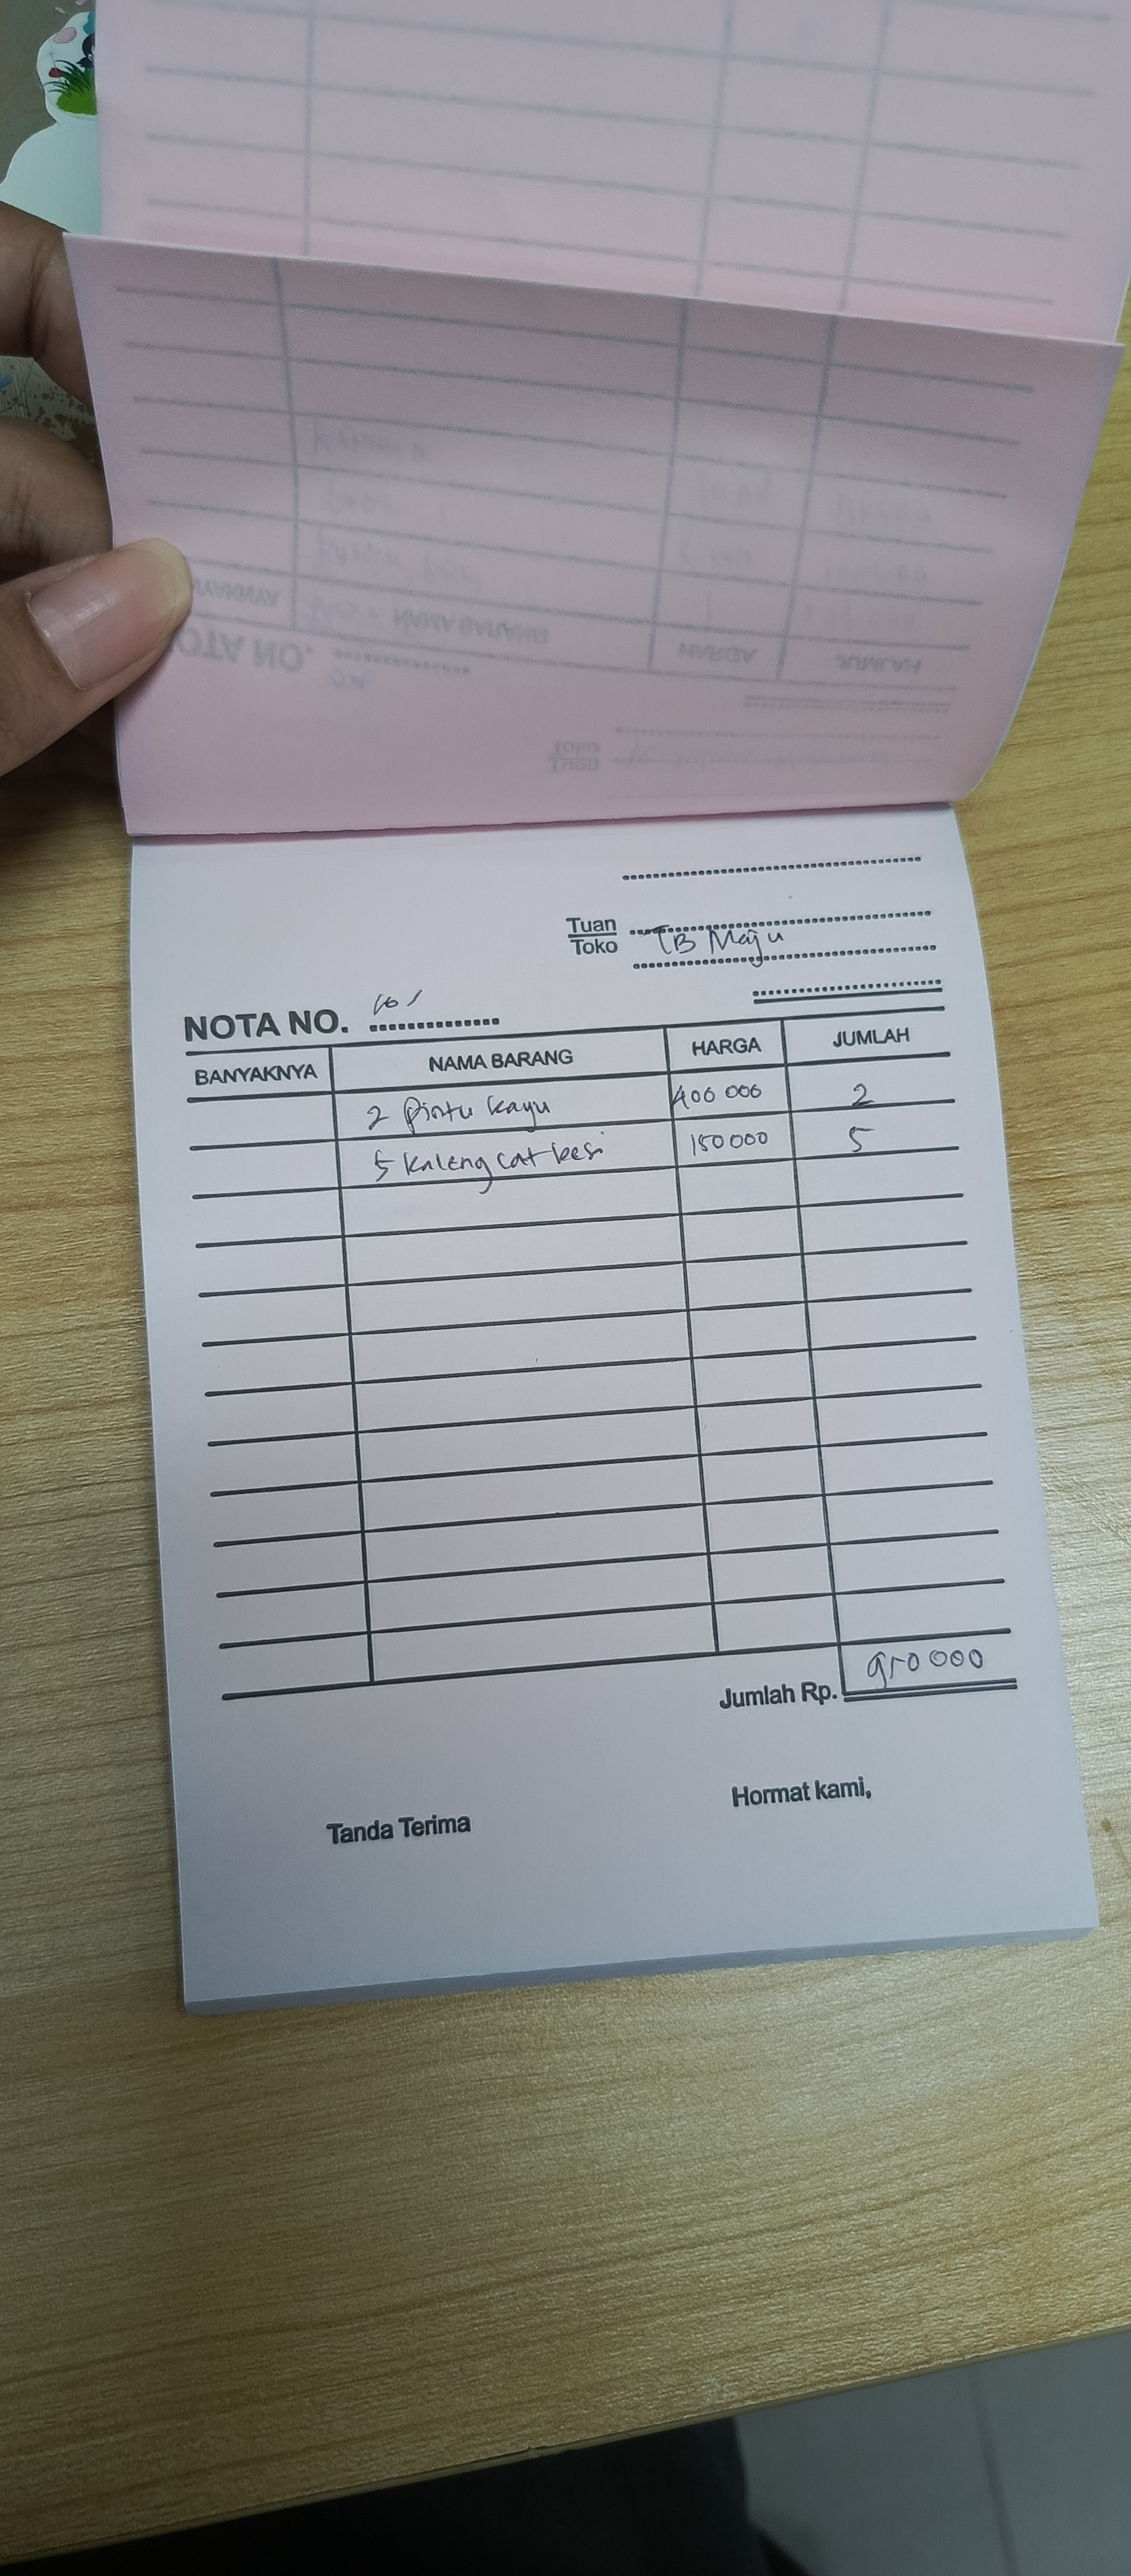 Tuan
Toko TB Maju
NOTA NO. 101
BANYAKNYA NAMA BARANG HARGA JUMLAH
2 Pintu kayu 400 000 2
5 kaleng cat besi 150 000 5
Jumlah Rp. 950 000
Tanda Terima Hormat kami,